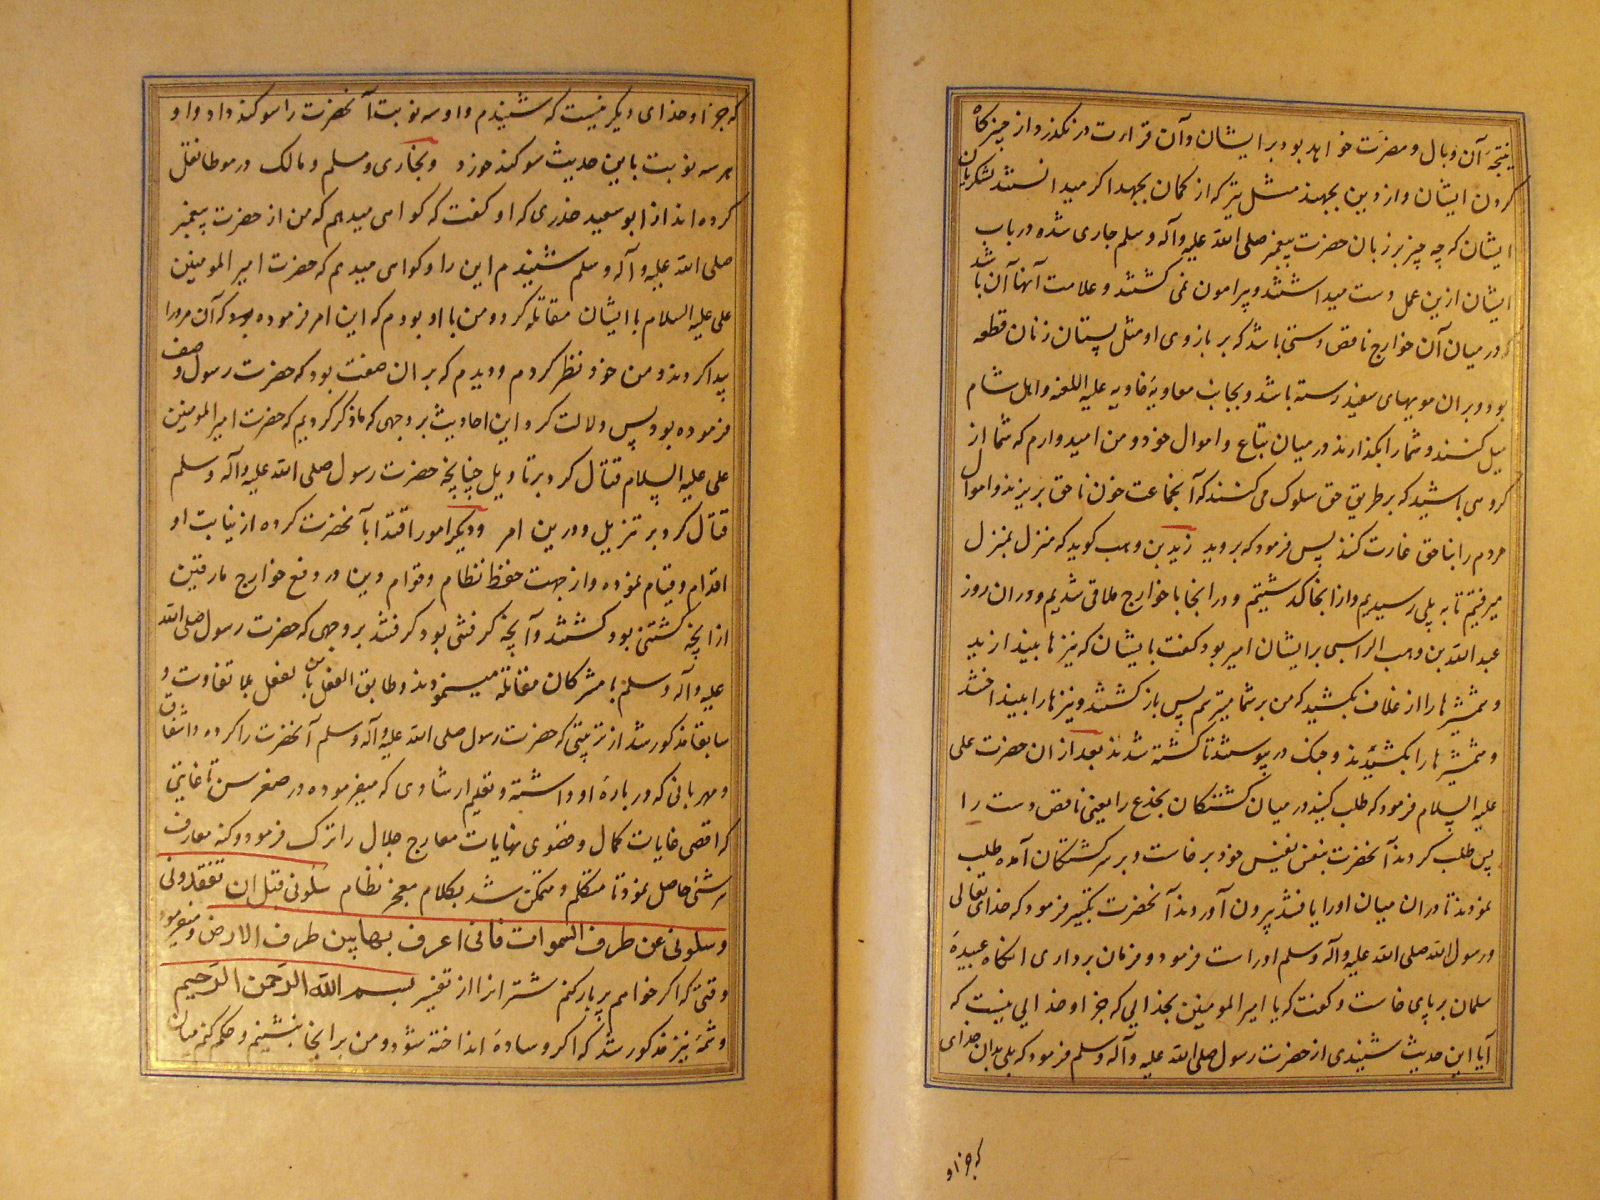 نتیجهٔ آن وبال و مضرت خواهد بود بر ایشان و آن قراءت در نکذرد از چنبر کاه
کردن ایشان و از دین بجهند مثل تیر که از کمان بجهد اکر میدانستند لشکریان
ایشان که چه چیز بر زبان حضرت پیغمبر صلی الله علیه و آله و سلم جاری شده در باب
ایشان ازین عمل دست میداشتند و پیرامون نمی کشتند و علامت آنها آن باشد
که در میان آن خوارج ناقص دستی باشد که بر بازوی او مثل پستان زنان قطعه
بود و بران مویهای سفید رسته باشد و بجانب معاویهٔ غاویه علیه اللعنه و اهل شام
میل کنند و شما را بکذارند در میان متاع و اموال خود و من امیدوارم که شما از
کروهی باشید که بر طریق حق سلوک می کنند که آنجماعت خون ناحق بریزند و اموال
مردم را بناحق غارت کنند پس فرمود که بروید زید بن وهب کوید که منزل بمنزل
میرفتیم تا به پلی رسیدیم و از انجا کذشتیم و در انجا با خوارج ملاقی شدیم و در ان روز
عبد الله بن وهب الراسبی بر ایشان امیر بود کفت بایشان که نیزها بیندازید
و شمشیرها را از غلاف بکشید که من بر شما میترسم پس باز کشتند و نیزها را بینداختند
و شمشیرها را بکشیدند و جنک در پیوستند تا کشته شدند بعد از ان حضرت علی
علیه السلام فرمود که طلب کنید در میان کشتکان مخدج را یعنی ناقص دست را
پس طلب کردند آنحضرت بنفس نفیس خود برخاست و بر سر کشتکان آمده طلب
نمودند تا در ان میان او را یافتند بیرون آوردند آنحضرت تکبیر فرمود که خدای تعالی
و رسول الله صلی الله علیه و آله و سلم او راست فرمود و فرمان برداری انکاه عبیدهٔ
سلمان بر پای خاست و کفت که یا امیر المومنین بخدایی که جز او خدایی نیست که
آیا این حدیث شنیدی از حضرت رسول صلی الله علیه و آله و سلم فرمود که بلی بدان خدای
که جز او
که جز او خدای دیکر نیست که شنیدم و او سه نوبت آنحضرت را سوکند داد و او
هر سه نوبت باین حدیث سوکند خورد و بخاری و مسلم و مالک در موطا نقل
کرده اند از ابو سعید خدری که او کفت که کواهی میدهم که من از حضرت پیغمبر
صلی الله علیه و آله و سلم شنیدم این را و کواهی میدهم که حضرت امیر المومنین
علی علیه السلام با ایشان مقاتله کرد و من با او بودم که این امر فرموده بود که آن مرد را
پیدا کردند و من خود نظر کردم و دیدم که بر ان صفت بود که حضرت رسول وصف
فرموده بود پس دلالت کرد این احادیث بر وجهی که ما ذکر کردیم که حضرت امیر المومنین
علی علیه السلام قتال کرد بر تاویل چنانچه حضرت رسول صلی الله علیه و آله و سلم
قتال کرد بر تنزیل و درین امر و دیکر امور اقتدا بآنحضرت کرده از نیابت او
اقدام و قیام نموده و از جهت حفظ نظام و قوام دین در دفع خوارج مارقین
از انچه کشتنی بود کشتند و آنچه کرفتنی بود کرفتند بر وجهی که حضرت رسول صلی الله
علیه و آله و سلم با مشرکان مقاتله مینمودند و طابق النعل بالنعل بلا تفاوت و
سابقا مذکور شد از تربیتی که حضرت رسول صلی الله علیه و آله و سلم آنحضرت را کرده و اشفاق
و مهربانی که در بارهٔ او داشته و تعلیم ارشادی که میفرموده در صغر سن تا غایتی
که اقصی غایات کمال و قصوی نهایات معارج جلال را ترک فرمود و کنه معارف
هر شئ حاصل نمود تا متکلم و متمکن شد بکلام معجز نظام سلونی قبل ان تفقدونی
و سلونی عن طرف السموات فانی اعرف بها من طرف الارض و میفرمود
وقتی که اکر خواهم پر بار کنم شتران را از تفسیر بسم الله الرحمن الرحیم
و ثمه نیز مذکور شد که اکر وسادهٔ انداخته شود و من بر انجا بنشینم و حکم کنم میان